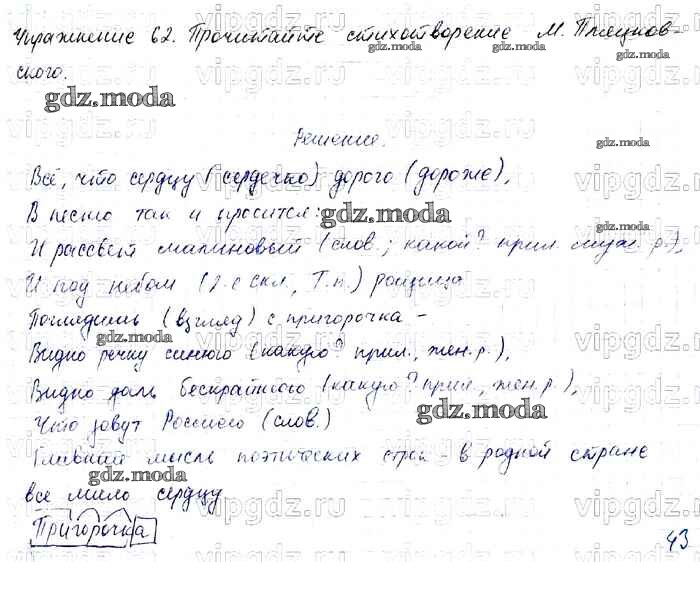 Упражнение 62. Прочитайте стихотворение М. Пляцков-
ского.
gdz.moda
Решение.
Всё, что сердцу (сердечко) дорого (дороже),
В песню так и просится:
И рассвет малиновый (слов.; какой? прил. муж. р.),
И под небом (2-е скл., Т.п.) рощица
Поглядишь (взгляд) с пригорочка –
Видно речку синюю (какую? прил., жен.р.),
Видно даль бескрайнюю (какую? прил., жен.р.),
Что зовут Россиею (слов.)
Главный мысль поэтических строк - в родной стране
все мило сердцу
Пригорочка
43